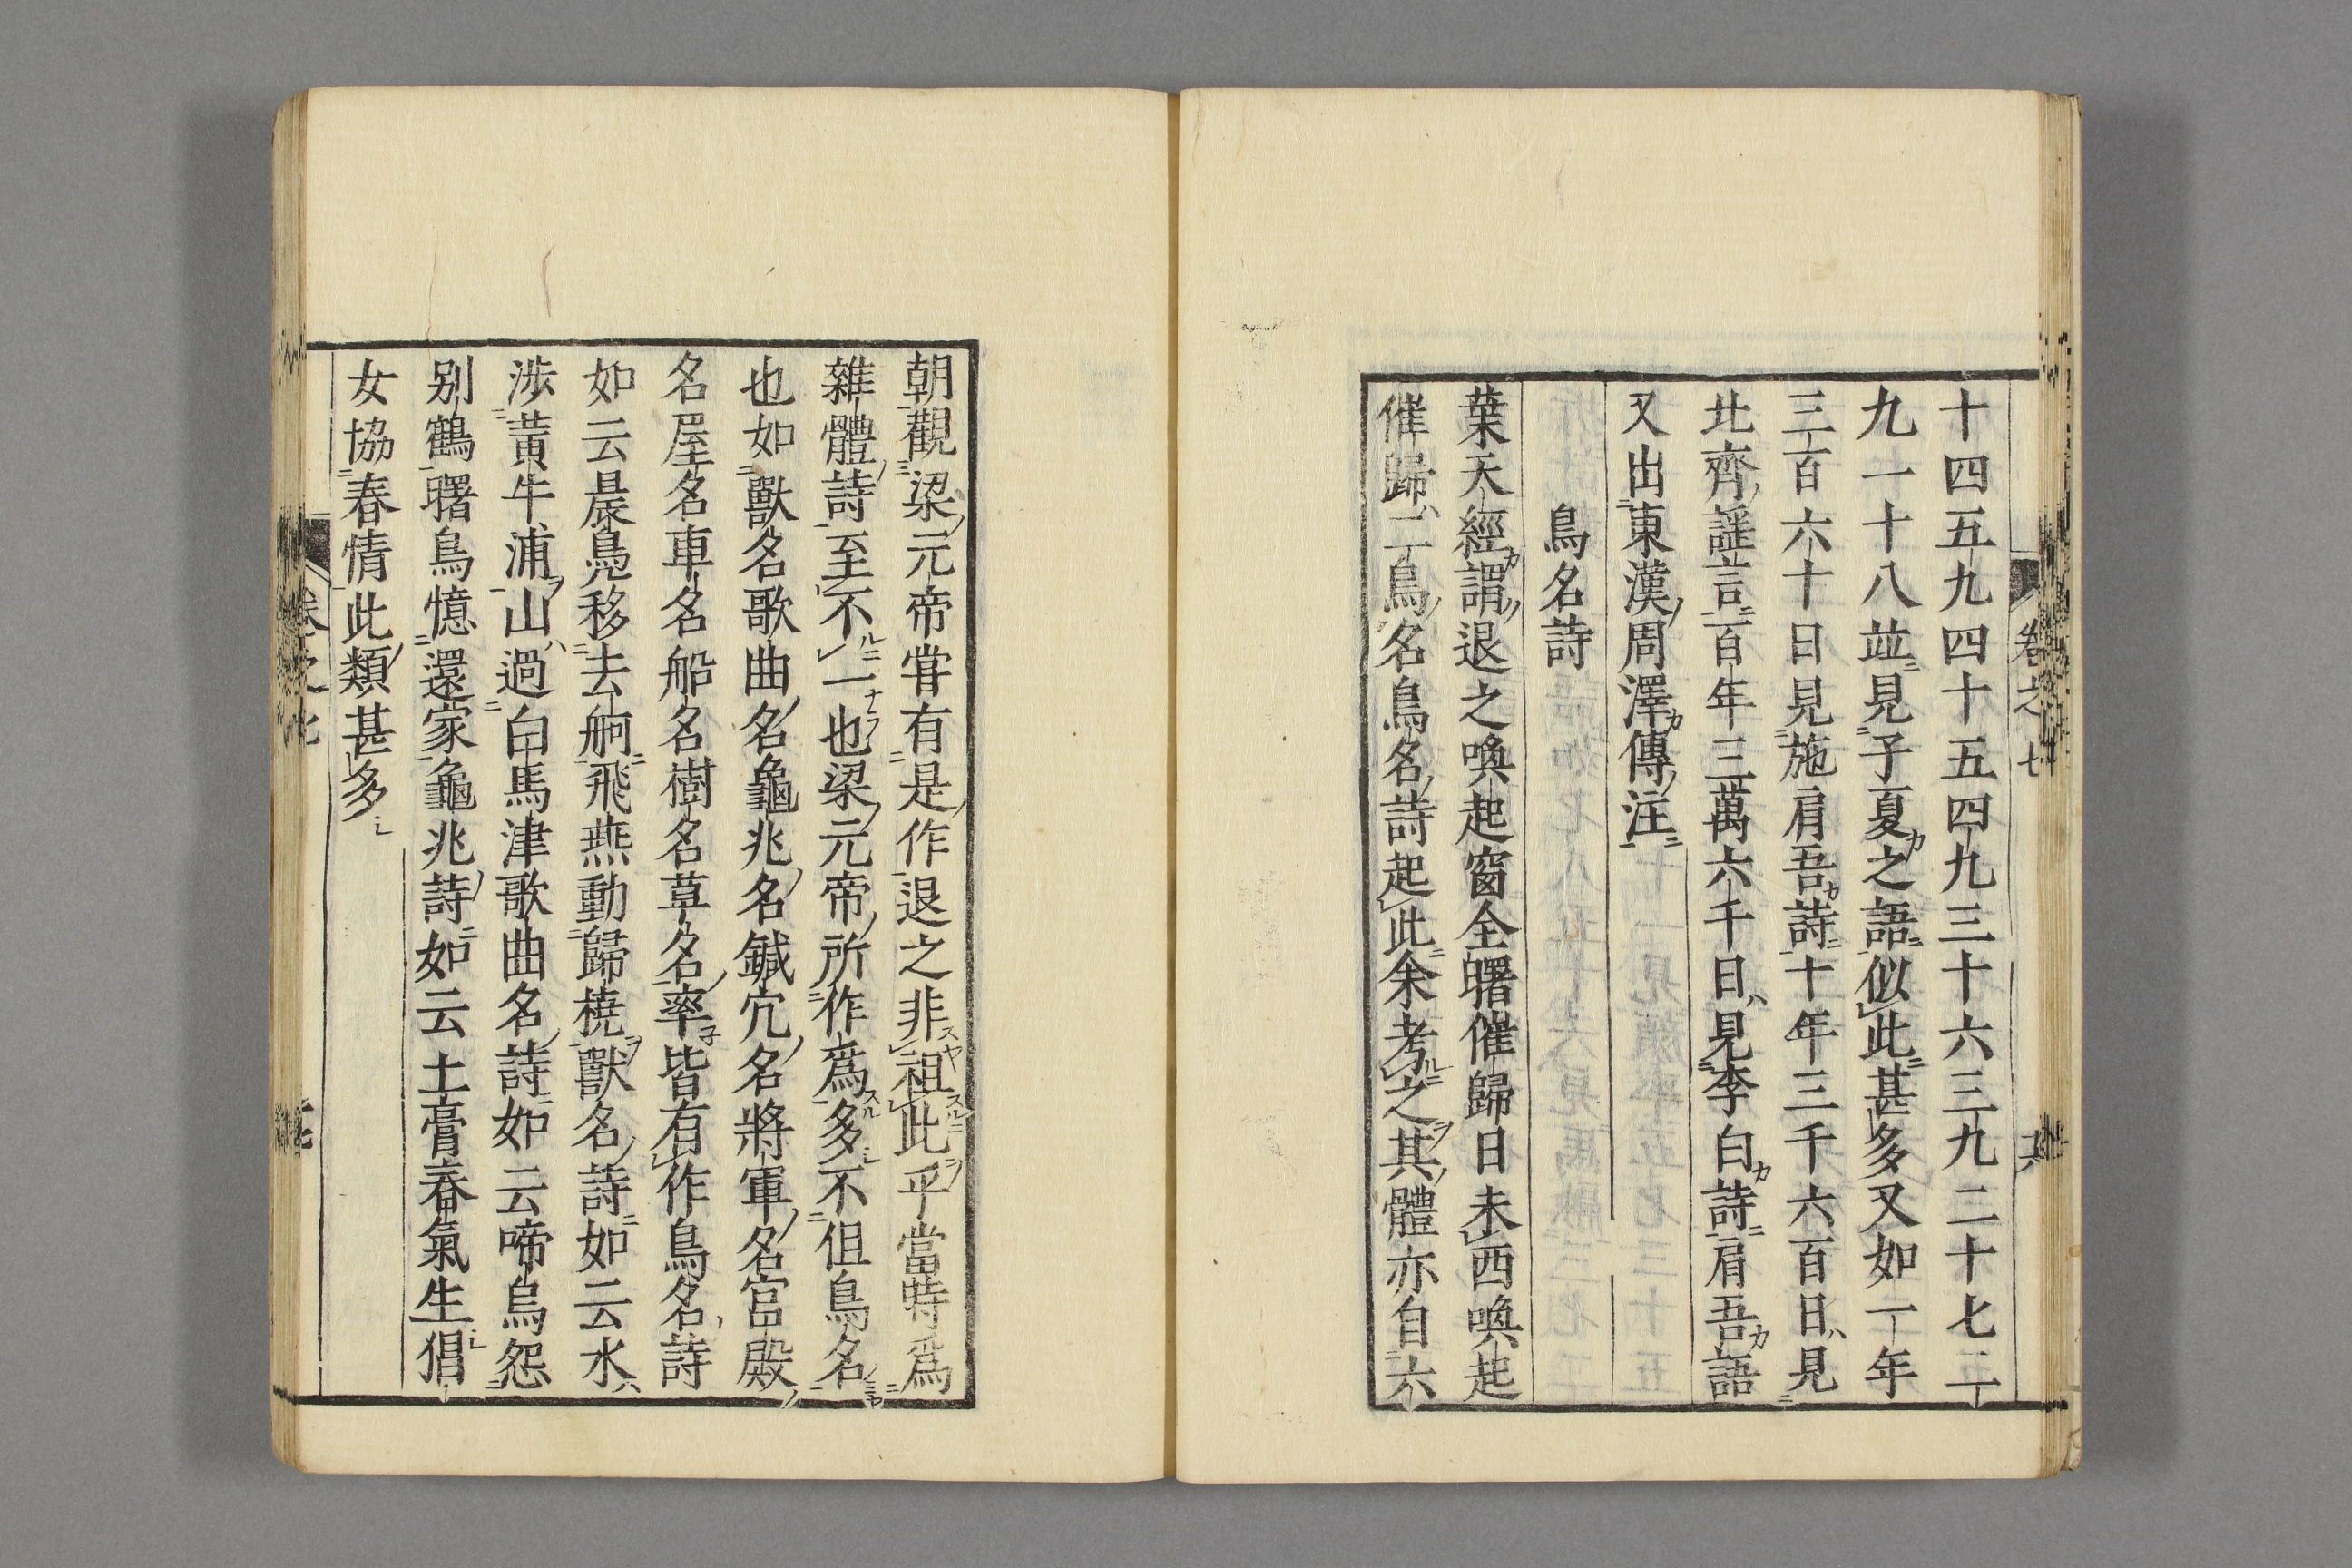 卷之七
十四五九四十五四九三十六三九二十七二
九一十八並見子夏之語似此甚多又如一年
三百六十日見施肩吾詩十年三千六百日見
北齊謡言百年三萬六千日見李白詩肩吾語
又出東漢周澤傳注
鳥名詩
葉天經謂退之喚起窗全曙催歸日未西喚起
催歸二鳥名鳥名詩起此余考之其體亦自六
朝觀梁元帝甞有是作退之非祖此乎當時爲
雜體詩至不一也梁元帝所作爲多不但鳥名
也如獸名歌曲名龜兆名鍼穴名將軍名宮殿
名屋名車名船名樹名草名率皆有作鳥名詩
如云晨鳧移去舸飛燕動歸橈獸名詩如云水
涉黃牛浦山過白馬津歌曲名詩如云啼烏怨
別鶴曙鳥憶還家龜兆詩如云土膏春氣生倡
女協春情此類甚多